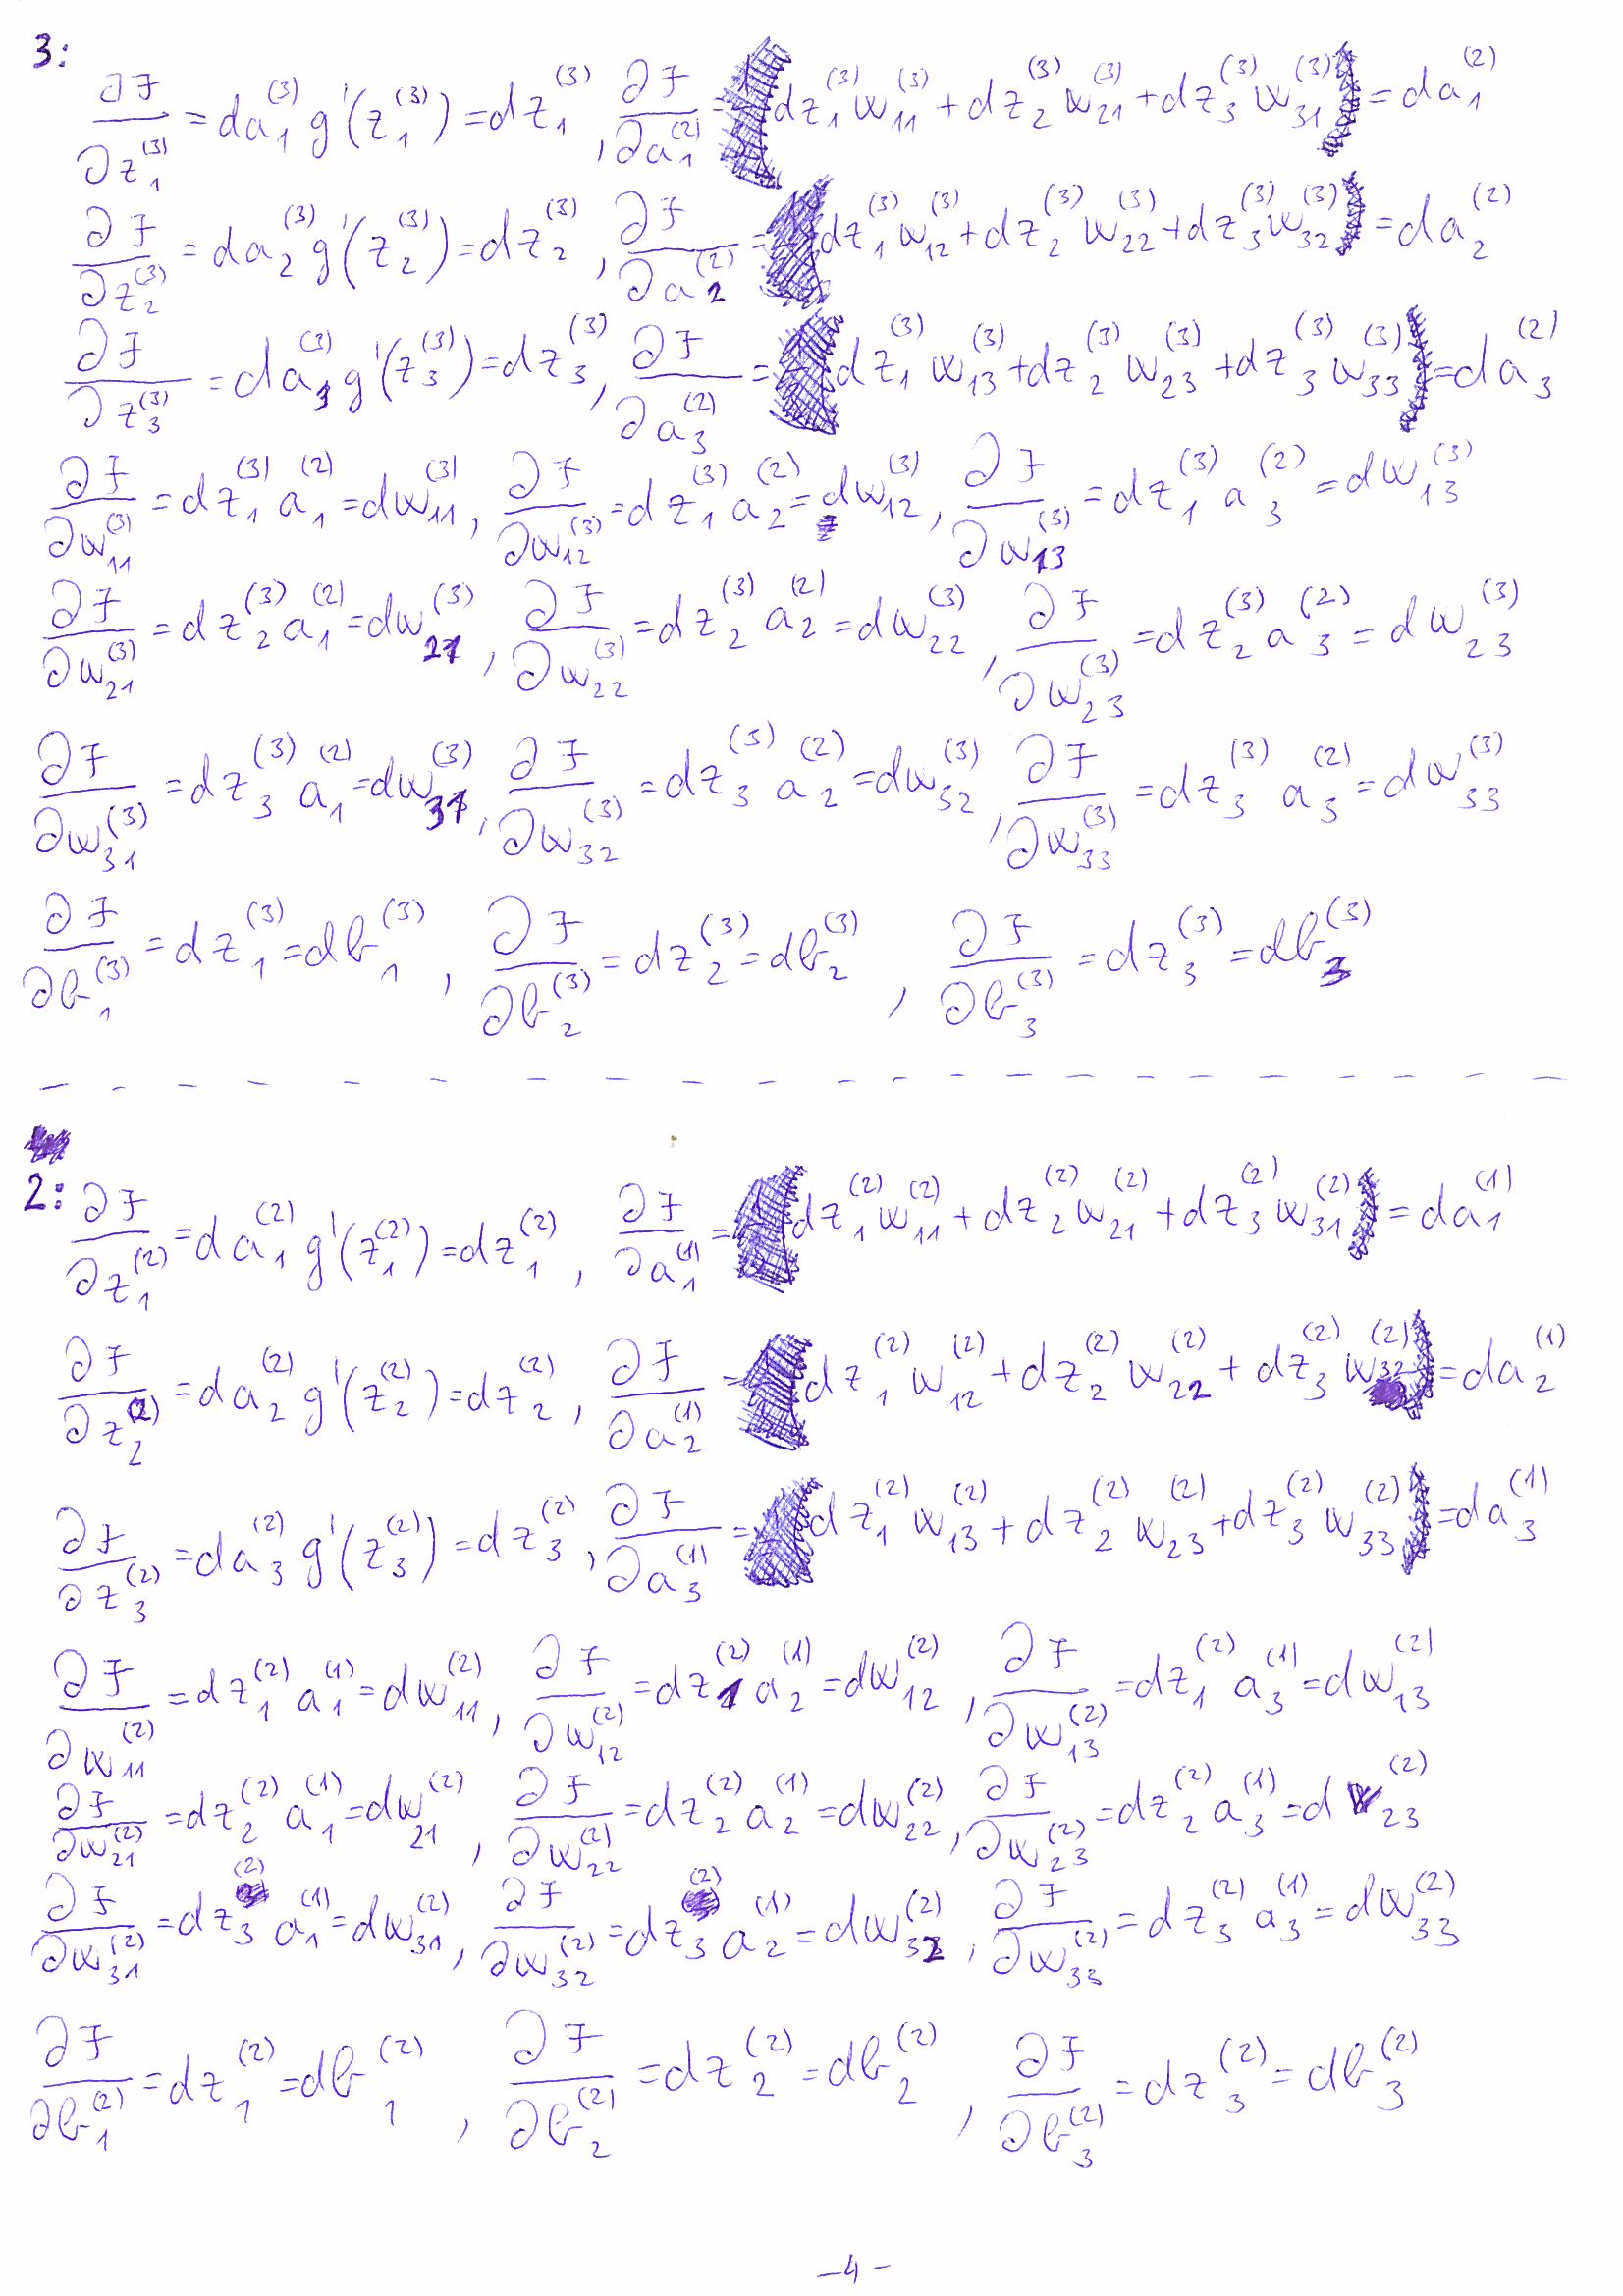 3:
∂J/∂z₁⁽³⁾ = da₁⁽³⁾ g'(z₁⁽³⁾) = dz₁⁽³⁾, ∂J/∂a₁⁽²⁾ = dz₁⁽³⁾ w₁₁⁽³⁾ + dz₂⁽³⁾ w₂₁⁽³⁾ + dz₃⁽³⁾ w₃₁⁽³⁾ = da₁⁽²⁾
∂J/∂z₂⁽³⁾ = da₂⁽³⁾ g'(z₂⁽³⁾) = dz₂⁽³⁾, ∂J/∂a₂⁽²⁾ = dz₁⁽³⁾ w₁₂⁽³⁾ + dz₂⁽³⁾ w₂₂⁽³⁾ + dz₃⁽³⁾ w₃₂⁽³⁾ = da₂⁽²⁾
∂J/∂z₃⁽³⁾ = da₃⁽³⁾ g'(z₃⁽³⁾) = dz₃⁽³⁾, ∂J/∂a₃⁽²⁾ = dz₁⁽³⁾ w₁₃⁽³⁾ + dz₂⁽³⁾ w₂₃⁽³⁾ + dz₃⁽³⁾ w₃₃⁽³⁾ = da₃⁽²⁾
∂J/∂w₁₁⁽³⁾ = dz₁⁽³⁾ a₁⁽²⁾ = dw₁₁⁽³⁾, ∂J/∂w₁₂⁽³⁾ = dz₁⁽³⁾ a₂⁽²⁾ = dw₁₂⁽³⁾, ∂J/∂w₁₃⁽³⁾ = dz₁⁽³⁾ a₃⁽²⁾ = dw₁₃⁽³⁾
∂J/∂w₂₁⁽³⁾ = dz₂⁽³⁾ a₁⁽²⁾ = dw₂₁⁽³⁾, ∂J/∂w₂₂⁽³⁾ = dz₂⁽³⁾ a₂⁽²⁾ = dw₂₂⁽³⁾, ∂J/∂w₂₃⁽³⁾ = dz₂⁽³⁾ a₃⁽²⁾ = dw₂₃⁽³⁾
∂J/∂w₃₁⁽³⁾ = dz₃⁽³⁾ a₁⁽²⁾ = dw₃₁⁽³⁾, ∂J/∂w₃₂⁽³⁾ = dz₃⁽³⁾ a₂⁽²⁾ = dw₃₂⁽³⁾, ∂J/∂w₃₃⁽³⁾ = dz₃⁽³⁾ a₃⁽²⁾ = dw₃₃⁽³⁾
∂J/∂b₁⁽³⁾ = dz₁⁽³⁾ = db₁⁽³⁾, ∂J/∂b₂⁽³⁾ = dz₂⁽³⁾ = db₂⁽³⁾, ∂J/∂b₃⁽³⁾ = dz₃⁽³⁾ = db₃⁽³⁾
2: ∂J/∂z₁⁽²⁾ = da₁⁽²⁾ g'(z₁⁽²⁾) = dz₁⁽²⁾, ∂J/∂a₁⁽¹⁾ = dz₁⁽²⁾ w₁₁⁽²⁾ + dz₂⁽²⁾ w₂₁⁽²⁾ + dz₃⁽²⁾ w₃₁⁽²⁾ = da₁⁽¹⁾
∂J/∂z₂⁽²⁾ = da₂⁽²⁾ g'(z₂⁽²⁾) = dz₂⁽²⁾, ∂J/∂a₂⁽¹⁾ = dz₁⁽²⁾ w₁₂⁽²⁾ + dz₂⁽²⁾ w₂₂⁽²⁾ + dz₃⁽²⁾ w₃₂⁽²⁾ = da₂⁽¹⁾
∂J/∂z₃⁽²⁾ = da₃⁽²⁾ g'(z₃⁽²⁾) = dz₃⁽²⁾, ∂J/∂a₃⁽¹⁾ = dz₁⁽²⁾ w₁₃⁽²⁾ + dz₂⁽²⁾ w₂₃⁽²⁾ + dz₃⁽²⁾ w₃₃⁽²⁾ = da₃⁽¹⁾
∂J/∂w₁₁⁽²⁾ = dz₁⁽²⁾ a₁⁽¹⁾ = dw₁₁⁽²⁾, ∂J/∂w₁₂⁽²⁾ = dz₁⁽²⁾ a₂⁽¹⁾ = dw₁₂⁽²⁾, ∂J/∂w₁₃⁽²⁾ = dz₁⁽²⁾ a₃⁽¹⁾ = dw₁₃⁽²⁾
∂J/∂w₂₁⁽²⁾ = dz₂⁽²⁾ a₁⁽¹⁾ = dw₂₁⁽²⁾, ∂J/∂w₂₂⁽²⁾ = dz₂⁽²⁾ a₂⁽¹⁾ = dw₂₂⁽²⁾, ∂J/∂w₂₃⁽²⁾ = dz₂⁽²⁾ a₃⁽¹⁾ = dw₂₃⁽²⁾
∂J/∂w₃₁⁽²⁾ = dz₃⁽²⁾ a₁⁽¹⁾ = dw₃₁⁽²⁾, ∂J/∂w₃₂⁽²⁾ = dz₃⁽²⁾ a₂⁽¹⁾ = dw₃₂⁽²⁾, ∂J/∂w₃₃⁽²⁾ = dz₃⁽²⁾ a₃⁽¹⁾ = dw₃₃⁽²⁾
∂J/∂b₁⁽²⁾ = dz₁⁽²⁾ = db₁⁽²⁾, ∂J/∂b₂⁽²⁾ = dz₂⁽²⁾ = db₂⁽²⁾, ∂J/∂b₃⁽²⁾ = dz₃⁽²⁾ = db₃⁽²⁾
-4-